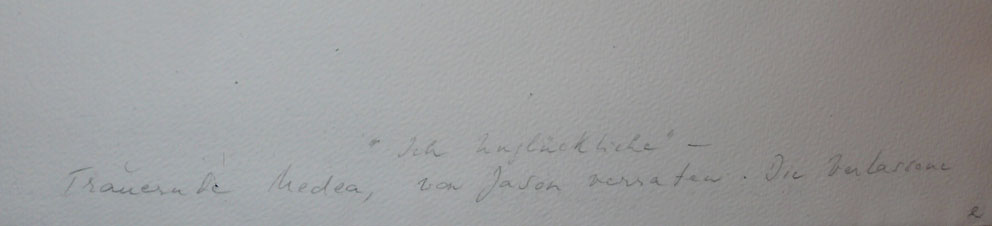 "Ich Unglückliche" –
Trauernde Medea, von Jason verraten. Die Verlassene
e